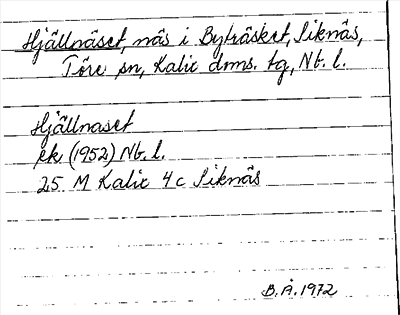 Hjällnäset, näs i Byträsket, Siknäs,
Töre sn, Kalix dmns. tg, Nb. l.
Hjällnäset
ek (1952) Nb. l.
25 M Kalix 4 c Siknäs
B. Å. 1972